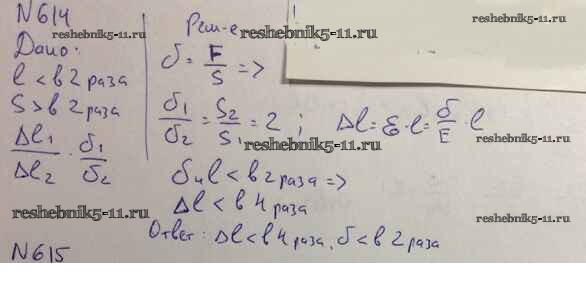 N614
Дано:
l < в 2 раза
S > в 2 раза
Δl₁/Δl₂ . σ₁/σ₂
Реш-е
σ = F/S =>
σ₁/σ₂ = S₂/S₁ = 2 ; Δl = ε·l = σ/E · l
σ и l < в 2 раза =>
Δl < в 4 раза
Ответ: Δl < в 4 раза, σ < в 2 раза
N615
reshebnik5-11.ru
reshebnik5-11.ru
reshebnik5-11.ru
reshebnik5-11.ru
reshebnik5-11.ru
reshebnik5-11.ru